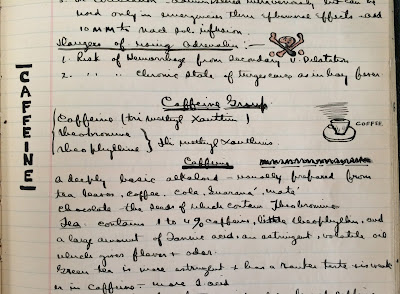 used only in emergencies
Dangers of using Adrenalin :-
1. Risk of Hemorrhage from Secondary V. Dilatation
2. " " Chronic State of turgescence as in hay fever.
CAFFEINE
Caffeine Group
Caffeine (tri methyl Xanthin)
theobromine
theophylline } Di methyl Xanthins.
COFFEE
Caffeine
a feebly basic alkaloid - usually prepared from
tea leaves, coffee, cola, Guarana, maté
chocolate - the seeds of which contain Theobromine
Tea contains 1 to 4% caffeine, little theophyllin, and
a large amount of Tannic acid; an astringent, volatile oil
which gives flavor & odor.
Green tea is more astringent & has a ranker taste & is weak
er in caffeine - more T. acid